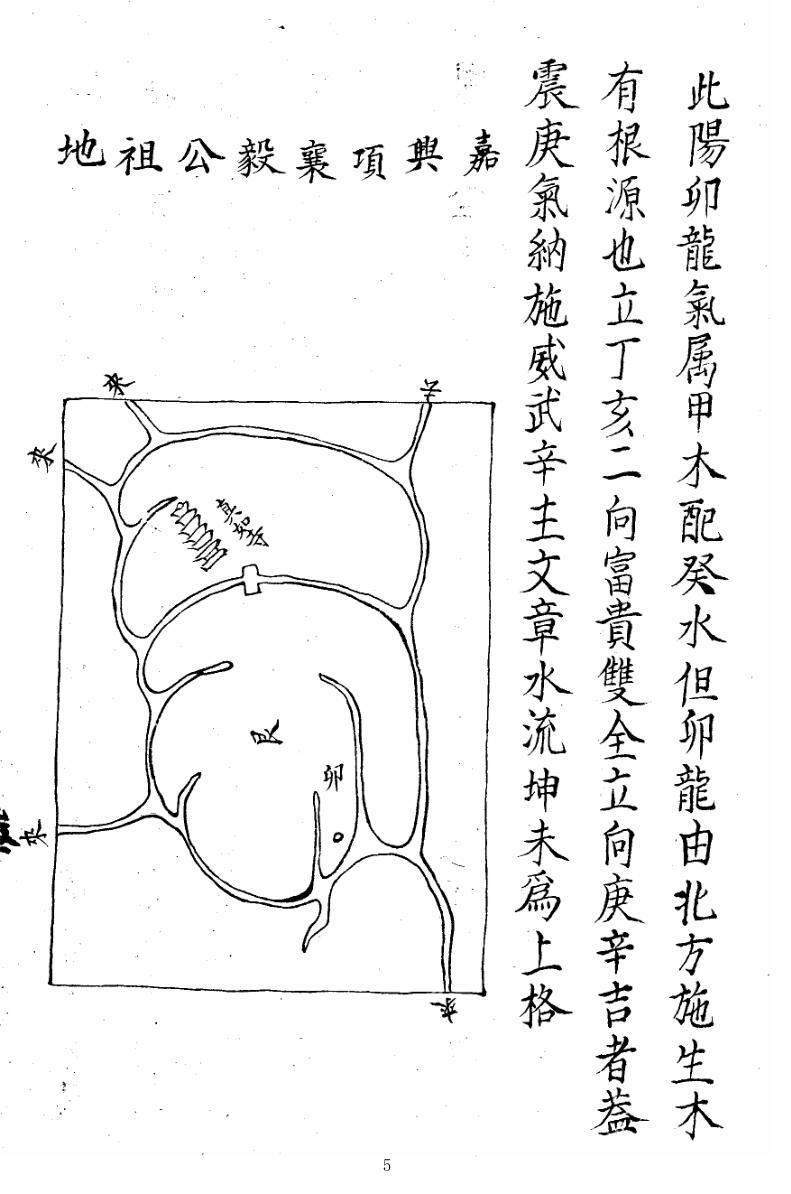 此陽卯龍氣属甲木配癸水但卯龍由北方施生木
有根源也立丁亥二向富貴雙全立向庚辛吉者葢
震庚氣納施威武辛主文章水流坤未爲上格
嘉興項襄毅公祖地
来
来
真如寺
艮
卯
来
来
5